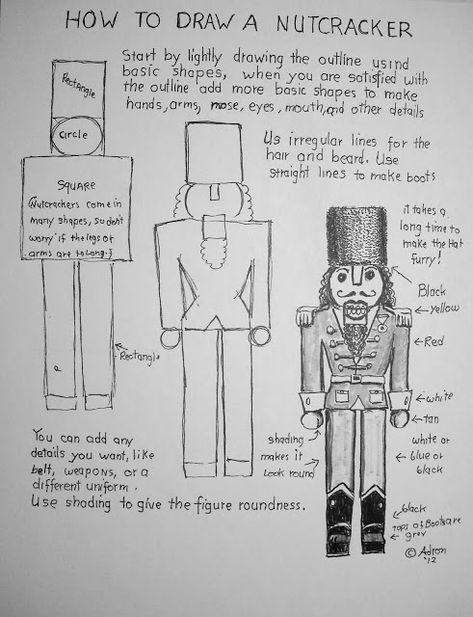 HOW TO DRAW A NUTCRACKER
Start by lightly drawing the outline usind
basic shapes, when you are satisfied with
the outline add more basic shapes to make
hands, arms, nose, eyes, mouth, and other details
Rectangle
Circle
SQUARE
(Nutcrackers come in
many shapes, so don't
worry if the legs or
arms are to long.)
Rectangle
Us irregular lines for the
hair and beard. Use
straight lines to make boots
it takes a
long time to
make the Hat
furry!
Black
yellow
Red
white
tan
white or
blue or
black
shading
makes it
look round
You can add any
details you want, like
belt, weapons, or a
different uniform.
Use shading to give the figure roundness.
black
tops of Boots are
grey
© Adron
'12